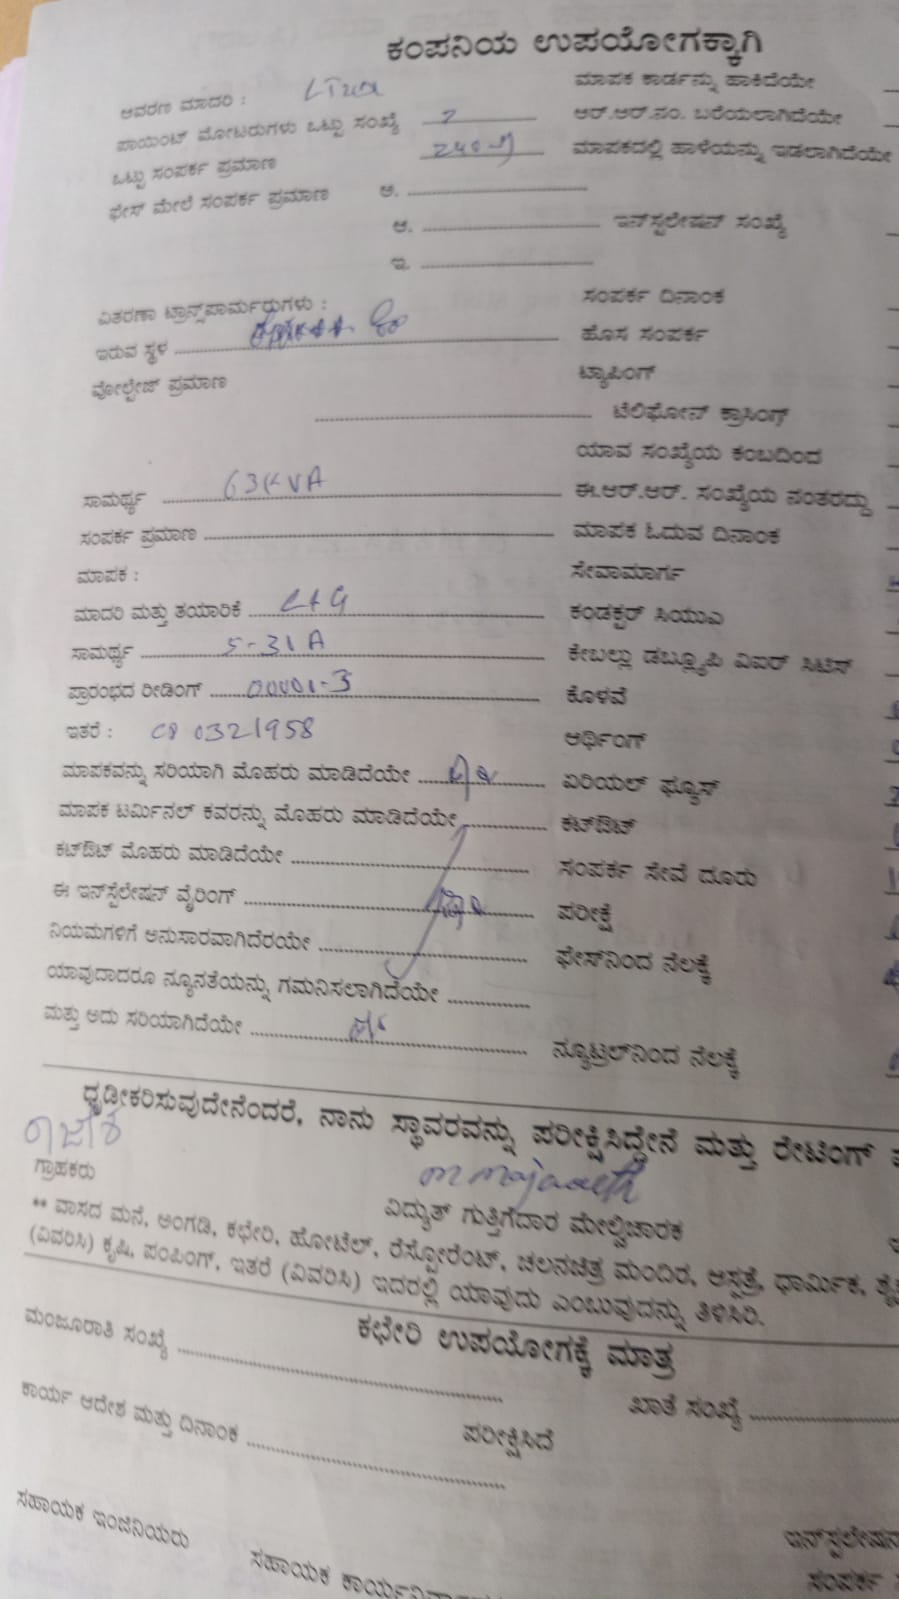 ಕಂಪನಿಯ ಉಪಯೋಗಕ್ಕಾಗಿ
ಆವರಣ ಮಾದರಿ : ಮಾಪಕ ಕಾರ್ಡನ್ನು ಹಾಕಿದೆಯೇ
ಪಾಯಿಂಟ್ ಮೋಟರುಗಳು ಒಟ್ಟು ಸಂಖ್ಯೆ 2 ಆರ್.ಆರ್.ನಂ. ಬರೆಯಲಾಗಿದೆಯೇ
ಒಟ್ಟು ಸಂಪರ್ಕ ಪ್ರಮಾಣ 240 ಮಾಪಕದಲ್ಲಿ ಹಾಳೆಯನ್ನು ಇಡಲಾಗಿದೆಯೇ
ಫೇಸ್ ಮೇಲೆ ಸಂಪರ್ಕ ಪ್ರಮಾಣ ಅ. ....................
ಆ. .................... ಇನ್‌ಸ್ಟಲೇಷನ್ ಸಂಖ್ಯೆ
ಇ. ....................
ವಿತರಣಾ ಟ್ರಾನ್ಸ್‌ಪಾರ್ಮರುಗಳು : ಸಂಪರ್ಕ ದಿನಾಂಕ
ಇರುವ ಸ್ಥಳ .................... ಹೊಸ ಸಂಪರ್ಕ
ವೋಲ್ಟೇಜ್ ಪ್ರಮಾಣ ಟ್ಯಾಪಿಂಗ್
.................... ಟೆಲಿಫೋನ್ ಕ್ರಾಸಿಂಗ್
ಯಾವ ಸಂಖ್ಯೆಯ ಕಂಬದಿಂದ
ಸಾಮರ್ಥ್ಯ 63KVA ಈ.ಆರ್.ಆರ್. ಸಂಖ್ಯೆಯ ನಂತರದ್ದು
ಸಂಪರ್ಕ ಪ್ರಮಾಣ .................... ಮಾಪಕ ಓದುವ ದಿನಾಂಕ
ಮಾಪಕ : ಸೇವಾಮಾರ್ಗ
ಮಾದರಿ ಮತ್ತು ತಯಾರಿಕೆ L+G ಕಂಡಕ್ಟರ್ ಸಿಯುಎ
ಸಾಮರ್ಥ್ಯ ಕೇಬಲ್ಲು ಡಬ್ಲ್ಯೂಪಿ ವಿಐರ್ ಸಿಟಿಸ್
ಪ್ರಾರಂಭದ ರೀಡಿಂಗ್ ಕೊಳವೆ
ಇತರೆ : 0321958 ಆರ್ಥಿಂಗ್
ಮಾಪಕವನ್ನು ಸರಿಯಾಗಿ ಮೊಹರು ಮಾಡಿದೆಯೇ ಏರಿಯಲ್ ಫ್ಯೂಸ್
ಮಾಪಕ ಟರ್ಮಿನಲ್ ಕವರನ್ನು ಮೊಹರು ಮಾಡಿದೆಯೇ ಕಟ್‌ಔಟ್
ಕಟ್‌ಔಟ್ ಮೊಹರು ಮಾಡಿದೆಯೇ .................... ಸಂಪರ್ಕ ಸೇವೆ ದೂರು
ಈ ಇನ್‌ಸ್ಟಲೇಷನ್ ವೈರಿಂಗ್ .................... ಪರೀಕ್ಷೆ
ನಿಯಮಗಳಿಗೆ ಅನುಸಾರವಾಗಿದೆರಯೇ .................... ಫೇಸ್‌ನಿಂದ ನೆಲಕ್ಕೆ
ಯಾವುದಾದರೂ ನ್ಯೂನತೆಯನ್ನು ಗಮನಿಸಲಾಗಿದೆಯೇ ............
ಮತ್ತು ಅದು ಸರಿಯಾಗಿದೆಯೇ .................... ನ್ಯೂಟ್ರಲ್‌ನಿಂದ ನೆಲಕ್ಕೆ
ಧೃಡೀಕರಿಸುವುದೇನೆಂದರೆ, ನಾನು ಸ್ಥಾವರವನ್ನು ಪರೀಕ್ಷಿಸಿದ್ದೇನೆ ಮತ್ತು ರೇಟಿಂಗ್
ಗ್ರಾಹಕರು ವಿದ್ಯುತ್ ಗುತ್ತಿಗೆದಾರ ಮೇಲ್ವಿಚಾರಕ
** ವಾಸದ ಮನೆ, ಅಂಗಡಿ, ಕಛೇರಿ, ಹೋಟೆಲ್, ರೆಸ್ಟೋರೆಂಟ್, ಚಲನಚಿತ್ರ ಮಂದಿರ, ಆಸ್ಪತ್ರೆ, ಧಾರ್ಮಿಕ,
(ವಿವರಿಸಿ) ಕೃಷಿ, ಪಂಪಿಂಗ್, ಇತರೆ (ವಿವರಿಸಿ) ಇದರಲ್ಲಿ ಯಾವುದು ಎಂಬುವುದನ್ನು ತಿಳಿಸಿರಿ.
ಕಛೇರಿ ಉಪಯೋಗಕ್ಕೆ ಮಾತ್ರ
ಮಂಜೂರಾತಿ ಸಂಖ್ಯೆ .................... ಖಾತೆ ಸಂಖ್ಯೆ ....................
ಕಾರ್ಯ ಆದೇಶ ಮತ್ತು ದಿನಾಂಕ .................... ಪರೀಕ್ಷಿಸಿದೆ
ಸಹಾಯಕ ಇಂಜಿನಿಯರು ಇನ್‌ಸ್ಟಲೇಷನ
ಸಹಾಯಕ ಸಂಪರ್ಕ